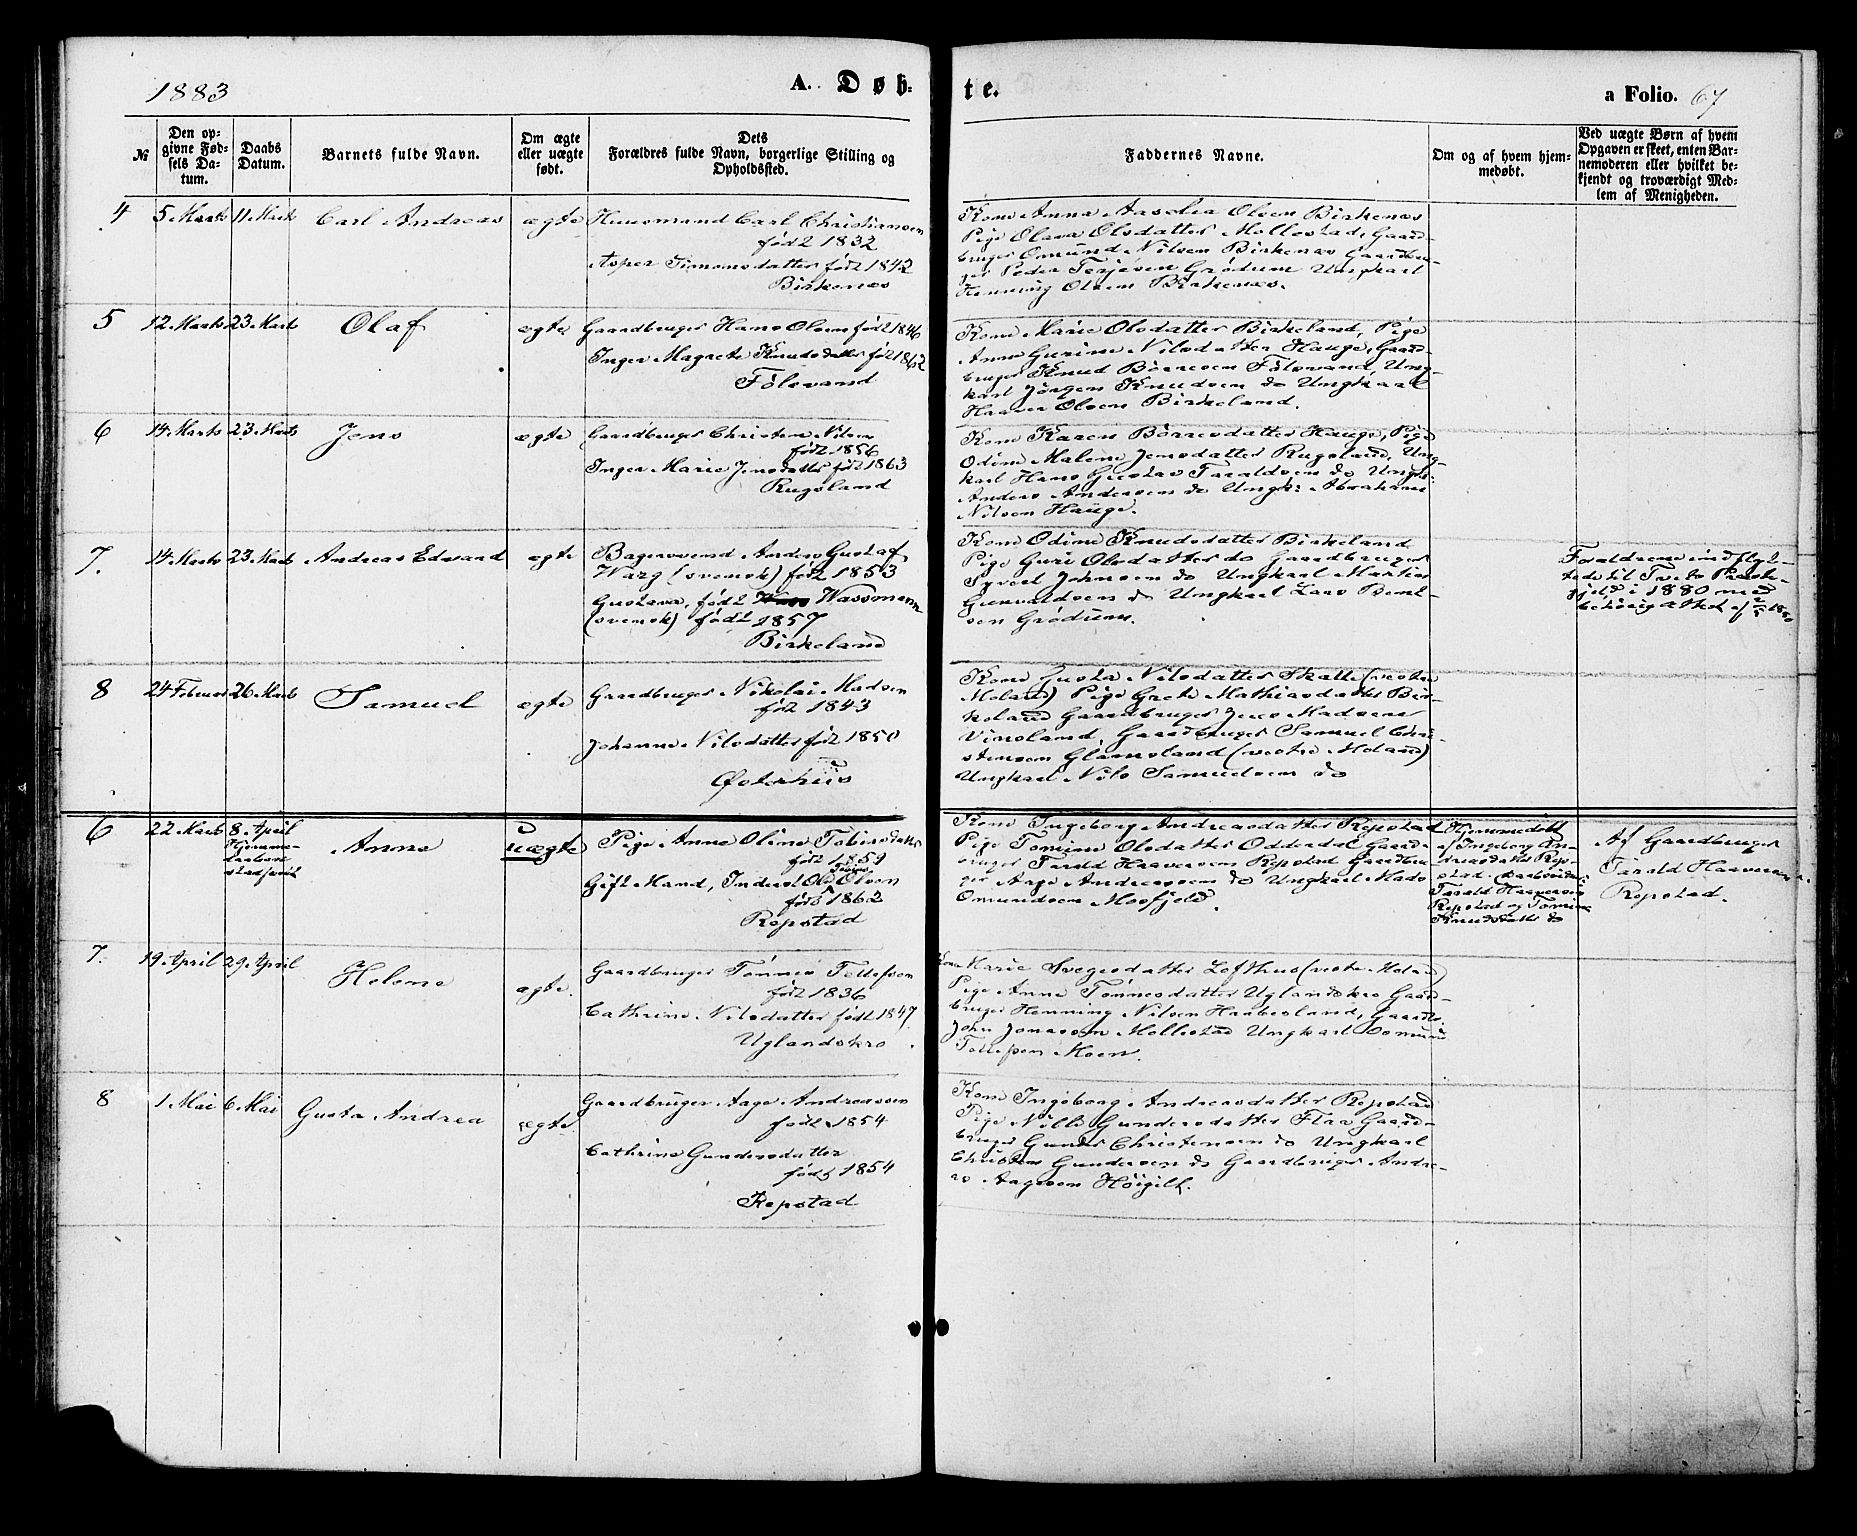 1883
A. Døb-
te.
a Folio. 67
№
Den op-
givne Fød-
sels Da-
tum.
Daabs
Datum.
Barnets fulde Navn.
Om ægte
eller uægte
født.
Dets
Forældres fulde Navn, borgerlige Stilling og
Opholdssted.
Faddernes Navne.
Om og af hvem hjem-
medøbt.
Ved uægte Børn af hvem
Opgaven er skeet, enten Bar-
nemoderen eller hvilket be-
kjendt og troværdigt Med-
lem af Menigheden.
4
5 Marts
11 Marts
Carl Andreas
ægte
Huusmand Carl Christiansen
født 1832
Asper Simonsdatter født 1842
Birkenæs
Kone Anna Olsen Birkenæs
Pige Olava Olsdatter Mollestad, Gaard-
bruger Omund Nilsen Birkenæs Gaardbru-
ger Peder Terjesen Grødum Ungkarl
Henning Olsen Birkenæs.
5
12 Marts
23 Marts
Olaf
ægte
Gaardbruger Hans Olsen født 1846
Inger Magrete Knudsdatter født 1862
Fölsvand
Kone Marie Olsdatter Birkeland, Pige
Anne Gurine Nilsdatter Hauge, Gaard-
bruger Knud Børresen Fölsvand, Ung-
karl Jørgen Knudsen do Ungkarl
Haaver Olsen Birkeland.
6
14 Marts
23 Marts
Jens
ægte
Gaardbruger Christen Nilsen
født 1856
Inger Marie Jensdatter født 1863
Rugsland
Kone Karen Børresdatter Hauge, Pige
Odine Malene Jensdatter Rugsland, Ung-
karl Hans Gustav Taraldsen do Ungk:
Anders Andersen do Ungk: Abraham
Nilsen Hauge.
7.
14 Marts
23 Marts
Andreas Edvard
ægte
Bagersvend Anders Gustaf
Warg (svensk) født 1853
Gustava, født Wassmann
(svensk) født 1857
Birkeland
Kone Odine Knudsdatter Birkeland
Pige Guri Olsdatter do Gaardbruger
Syvert Johnsen do Ungkarl Martin
Gunvaldsen do Ungkarl Lars Bent-
sen Grødum.
Forældrene indflyt-
tede til Preste-
gjeld i 1880 med
behørig attest af
8
24 Februar
26 Marts
Samuel
ægte
Gaardbruger Nikolai Madsen
født 1843
Johanne Nilsdatter født 1850
Østerhus
Kone Gusta Nilsdatter Skatte (vestre
Moland) Pige Grete Mathiasdatter Bir-
keland Gaardbruger Jens Madsen
Vinsland, Gaardbruger Samuel Chri-
stensen Glamsland (vestre Moland)
Ungkarl Nils Samuelsen do
6
22 Marts
8 April
Hjemme-
daaben
stadfæstet
Anne
uægte
Pige Anne Oline Tobiasdatter
født 1859
Gift Mand, Inderst Ole Olsen
født 1862
Repstad
Kone Ingeborg Andreasdatter Repstad
Pige Tomine Olsdatter Oddersdal Gaard-
bruger Tarald Haaversen Repstad Gaardbru-
ger Aage Andreassen do Ungkarl Mads
Omundsen Mosfjeld.
Hjemmedøbt
af Ingeborg An-
dreasdatter Rep-
stad.
Tarald Haaversen
Repstad og Tomine
Knudsdatter do
Af Gaardbruger
Tarald Haaversen
Repstad.
7.
19 April
29 April
Helene
ægte.
Gaardbruger Tønnes Tellefsen
født 1836
Cathrine Nilsdatter født 1847
Uglandskro.
Kone Marie Svegesdatter Lofthus (vestre Moland)
Pige Anne Tønnesdatter Uglandskro Gaard-
bruger Henning Nilsen Haabesland, Gaardbr.
John Jonassen Mollestad Ungkarl Tomund
Tellefsen Moen.
8
1 Mai
6 Mai
Gusta Andrea
ægte
Gaardbruger Aage Andreassen
født 1854
Cathrine Gundersdatter
født 1854
Repstad
Kone Ingeborg Andreasdatter Repstad
Pige Nilli Gundersdatter Flaa Gaard-
bruger Gunder Christensen do Ungkarl
Christen Gundersen do Gaardbruger Andre-
as Aagesen Høigilt.